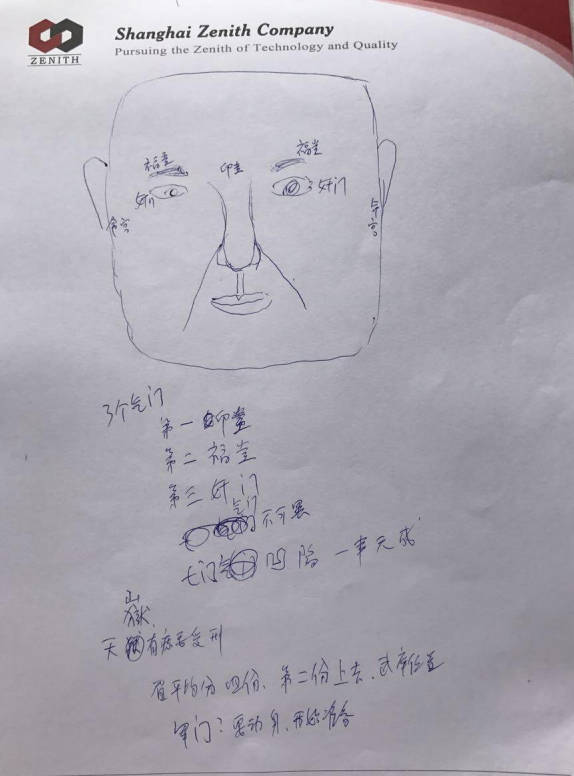 Shanghai Zenith Company
Pursuing the Zenith of Technology and Quality
ZENITH
福堂 印堂 福堂
奸门 奸门
命宫
3个气门
第一 印堂
第二 福堂
第三 奸门
气门
不可
七门 凹陷 一事无成
山
狱
天 有 受刑
眉平均分四份、第二份上去、武库位置
军门：要动身、开始准备